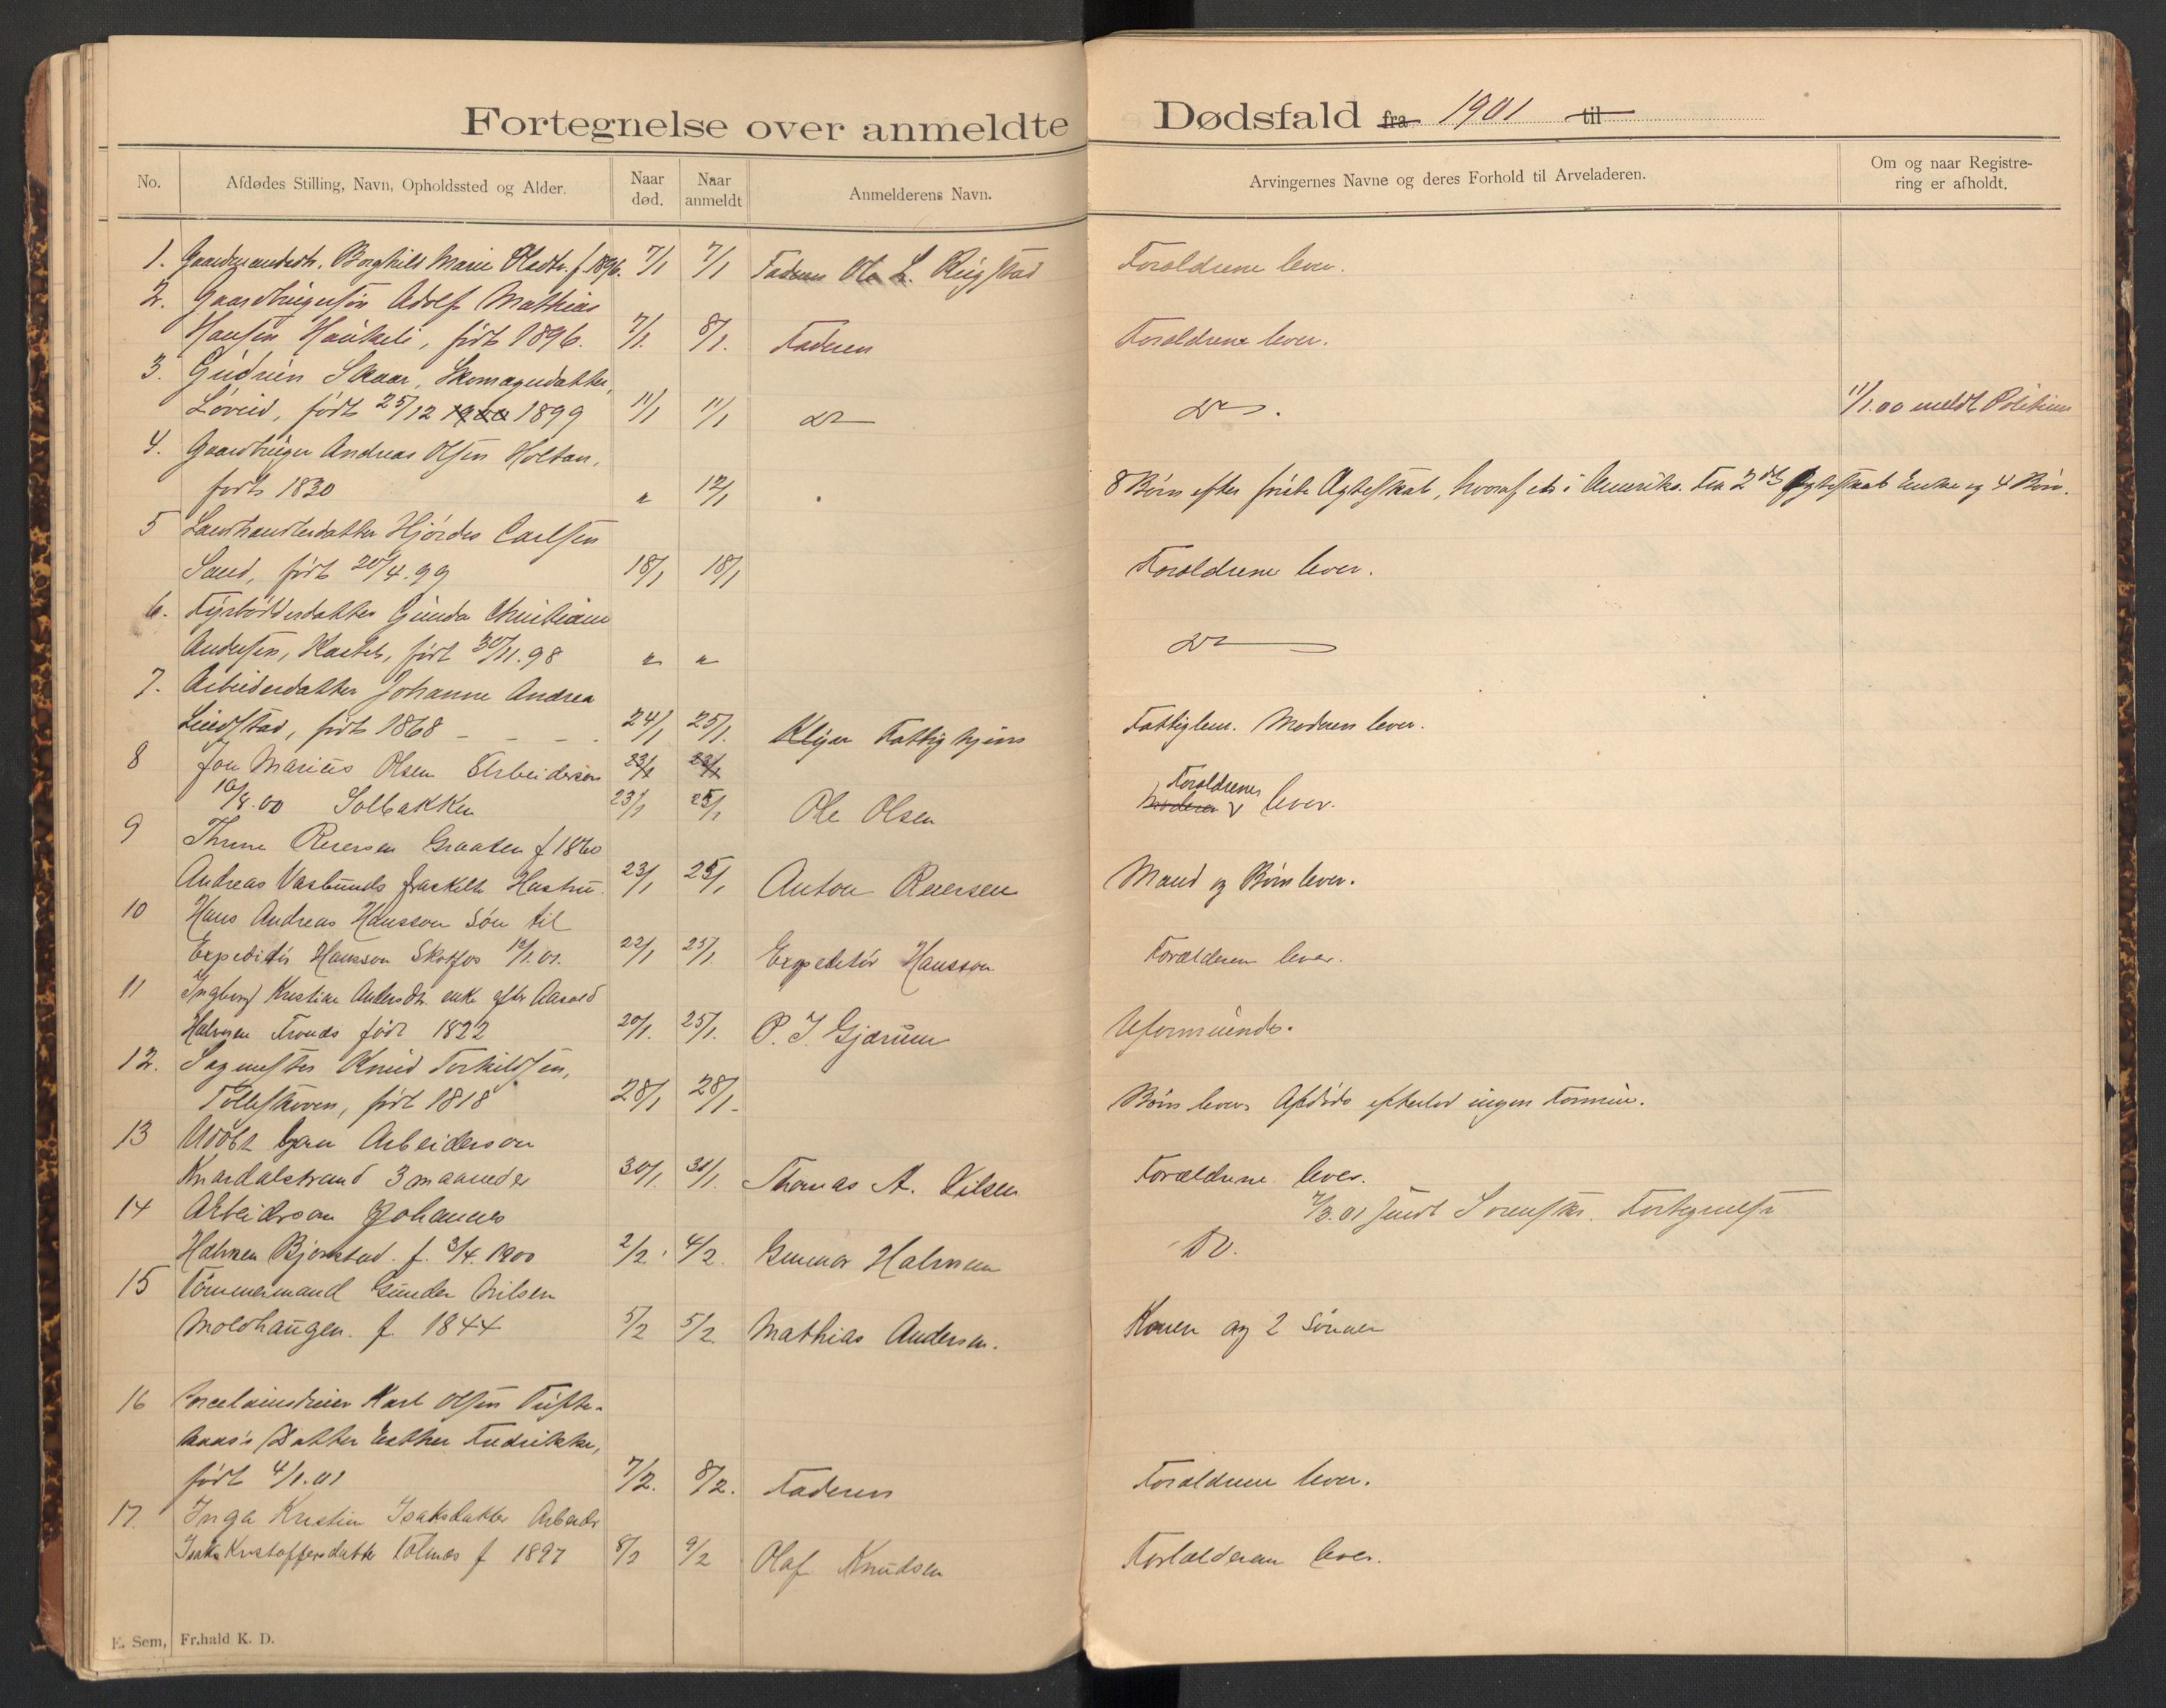 Fortegnelse over anmeldte Dødsfald fra 1901 til
No.
Afdødes Stilling, Navn, Opholdssted og Alder.
Naar død.
Naar anmeldt
Anmelderens Navn.
Arvingernes Navne og deres Forhold til Arveladeren.
Om og naar Registrering er afholdt.
1. Gaardmandsdtr. Borghild Marie Olsdtr. f. 1896. 7/1 7/1 Faderen Ole L. Rugstad Forældrene lever.
2. Gaardbrugersøn Adolf Mathias
Hansen Haukeli, født 1896. 7/1. 8/1. Faderen Forældrene lever.
3. Gudrun Skaar, Skomagerdatter,
Løveid, født 25/12 1900 1899 11/1 11/1 do do. 11/1.00 meldt Politiet
4. Gaardbruger Andreas Olsen Holtan,
født 1830 " 12/1 8 Børn efter første Ægteskab, hvoraf et i Amerika. Fra 2det Ægteskab Enke og 4 Børn.
5 Landhandlerdatter Hjørdes Carlsen
Sand, født 20/4.99 18/1 18/1 Forældrene lever.
6. Fyrbøderdatter Gunda Christiane
Andersen, født 30/11.98 " " do
7. Arbeiderdatter Johanne Andrea
Lindstad, født 1868 - - - 24/1 25/1. Fattighjem Fattiglem. Moderen lever.
8 Jon Marius Olsen Arbeidersøn 23/1 23/1
10/8.00 Solbakken 23/1 25/1 Ole Olsen Moderen Forældrene lever.
9 Reiersen Graaten f 1860
Andreas Vasbunds fraskilte Hustru. 23/1 25/1 Anton Reiersen Mand og Børn lever.
10 Hans Andreas Hansson Søn til
Expeditør Hansson Skotfos 12/1.01. 22/1 25/1 Expeditør Hansson Forælderen lever.
11 Ingborg Kristine Andersdtr. enke efter Aasold
Halvorsen født 1822 20/1. 25/1. P. J. Gjærum Uformuende.
12. Sagmester Knud Torkildsen,
Tollefskoven, født 1818 28/1 28/1. Børn lever. Afdøde efterlod ingen Formue.
13 Udøbt Arbeidersøn
Knardalstrand 3 maaneder 30/1. 31/1. Thomas A. Nilsen Forældrene lever.
7/3.01 sendt Sorenskr. Fortegnelse
14 Arbeidersøn Johannes
Halvorsen Bjørnstad. f. 3/4. 1900 2/2. 4/2. Gunnar Halvorsen Do.
15 Tømmermand Gunder Nilsen
Moldhaugen. f. 1844 5/2 5/2 Mathias Andersen. Konen og 2 Sønner
16 Porcelainsdreier Karl Olsen Tufte-
haas's Datter Esther Fredrikke,
født 4/1.01 7/2. 8/2. Faderen Forældrene lever.
17. Inga Kristin Isaksdatter Arbeider
Isak Kristoffersdatter Tolnæs f 1897 8/2 9/2 Olaf Knudsen Forælderen lever.
E. Sem, Fr.hald K. D.